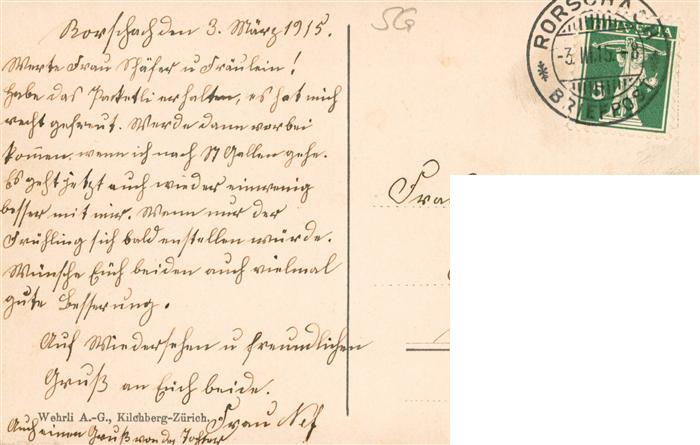 Rorschach den 3. März 1915.
Werte Frau Schäfer u Fräulein!
Habe das Packetli erhalten, es hat mich
recht gefreut. Werde dann vorbei
kommen, wenn ich nach St Gallen gehe.
Es geht jetzt auch wieder einwenig
besser mit mir. Wenn nur der
Frühling sich bald einstellen würde.
Wünsche Euch beiden auch vielmal
gute Besserung.
Auf Wiedersehen u freundlichen
Gruß an Euch beide.
Frau Nef
Auch einen Gruß von der Tochter
Wehrli A.-G., Kilchberg-Zürich.
SG
RORSCHACH
-3.III.15.-8
BRIEFPOST
HELVETIA